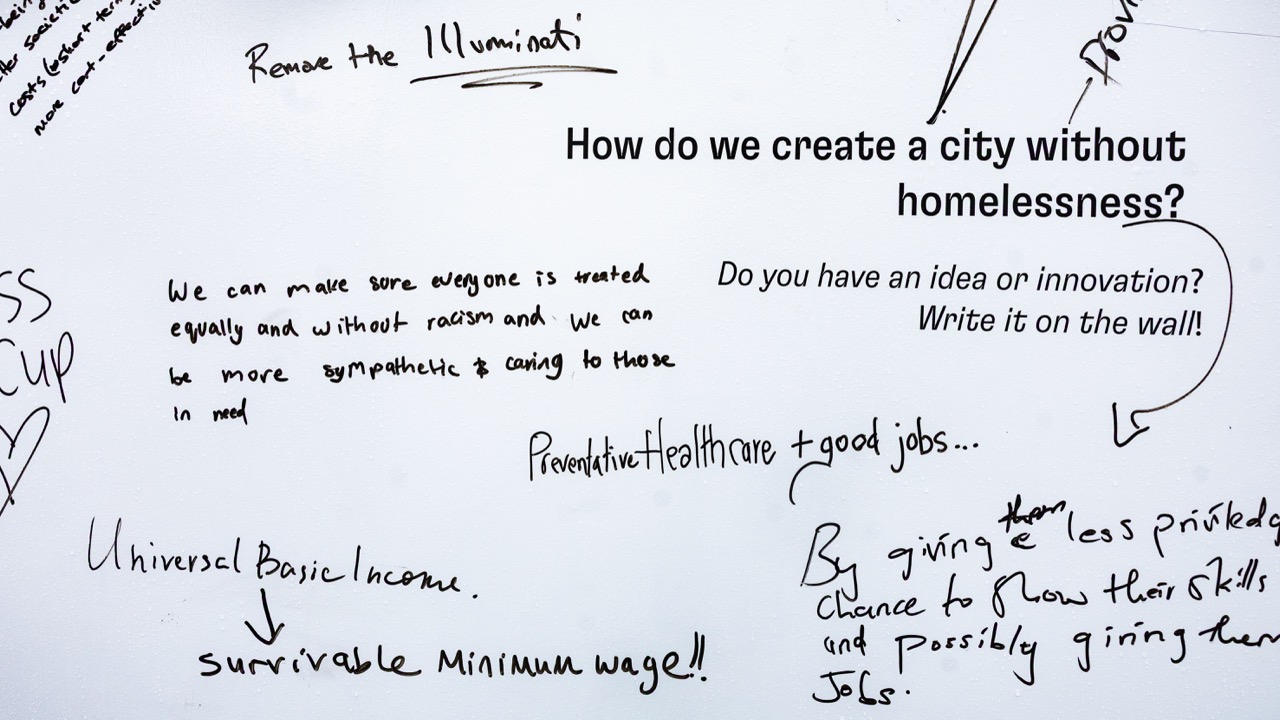 costs (short term
more cost-effective
Remove the Illuminati
How do we create a city without
homelessness?
Do you have an idea or innovation?
Write it on the wall!
We can make sure everyone is treated
equally and without racism and we can
be more sympathetic & caring to those
in need
Preventative Healthcare + good jobs...
Universal Basic Income.
survivable Minimum wage!!
By giving them less
chance to show their skills
and possibly giving them
Jobs.